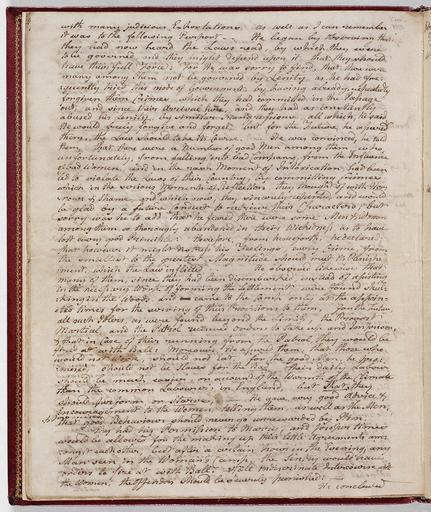 with many judicious Exhortations. as well as I can remember
it was to the following Purport — He began by observing that
they had now heard the Laws read, by which they were
to be governed, and they might depend upon it that they should
have their full Force. That he was sorry to find, that there were
many among them not be governed by Lenity, as he had fre-
quently tried this mode of Government by having already, repeatedly
forgiven them Crimes which they had committed in the Passage
out, and since their Arrival here, and they had as constantly
abused his lenity, by all which he said
He would freely forgive and forget. but for the Future he assured
them, the Law should take its Course. — He was convinced, he told
them, that there were a Number of good Men among them, who
unfortunately, from falling into bad Company, from the Influence
of bad Women, and in the rash Moment of Intoxication, had been
led to violate the Laws of their Country, by committing Crimes
which in the serious Moments of Reflection, they thought of with Hor-
rour & Shame, and of which now, they sincerely repented, and would
be glad by a future Conduct to retrieve their Characters. but
sorry was he to add that he feared there were some Men & Women
among them so thoroughly abandoned in their Wickedness, as to have
lost every good Principle. therefore, from henceforth, he declared
that however it might distress his Feelings, every Crime, from
the smallest to the greatest Magnitude should meet the Punish-
ment, which the Law inflicted. He observed likewise that
many of them, since they had been disembarked instead of assisting
in the necessary Work of forming the Settlement, were found skul-
king in the Woods and came to the Camp only at the appoin-
ted times for the serving of their Provisions. To them,
all such of them, as were found beyond the Limits, the Provost
Martial, and the Patrol received orders to take up and Imprison,
& that in case of their running from the Patrol, they would be
fired at with Ball. Moreover he assured them, that those who
would not work, should not eat, for the good Men, he pro-
mised should not be Slaves for the Bad. Their Daily Labour
should be much easier on account of the Warmth of the Climate
than the common Labourers in England, but that, they
should perform or Starve. — He gave very good advice &
encouragement to the Women, telling them, as well as the Men,
that good Behaviour should never go unrewarded by Him.
They had his Permission to Marry, and proper times
would be allowed for the making up their little Agreements am-
ongst each other, but after a certain hour in the Evening, any
Man seen in the Woman's Camp, the Centry would have
orders to fire at with Ball. all Indiscriminate Intercourse with
the Women, the offenders should be severely punished.
He concluded